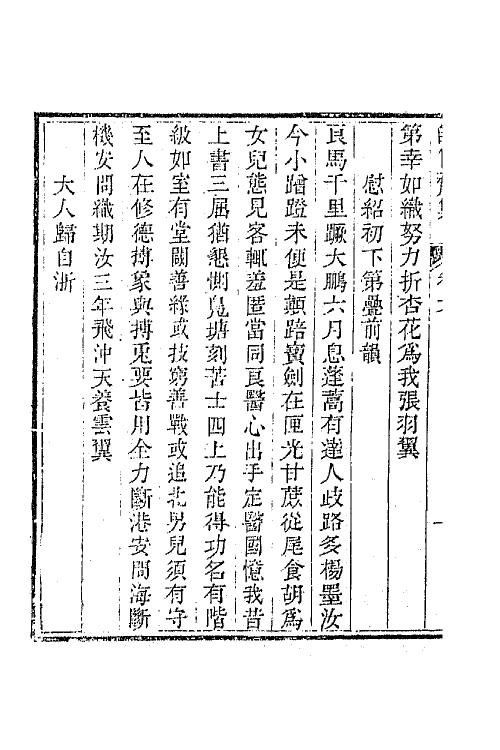 第幸如織努力折杏花爲我張羽翼
慰紹初下第疊前韻
良馬千里蹶大鵬六月息蓬蒿有達人歧路多楊墨汝
今小蹭蹬未便是顛踣寶劍在匣光甘蔗從尾食胡爲
女兒態見客輒羞匿當同良醫心出手定醫國憶我昔
上書三屈猶懇惻鬼塘刻苦士四上乃能得功名有階
級如室有堂閾善綠或技窮善戰或追北男兒須有守
至人在修德搏象與搏兎要皆用全力斷港安問海斷
機安問織期汝三年飛沖天養雲翼
大人歸自浙